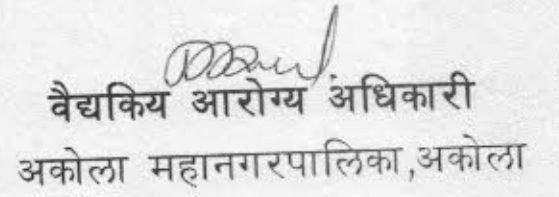 वैद्यकिय आरोग्य अधिकारी
अकोला महानगरपालिका,अकोला